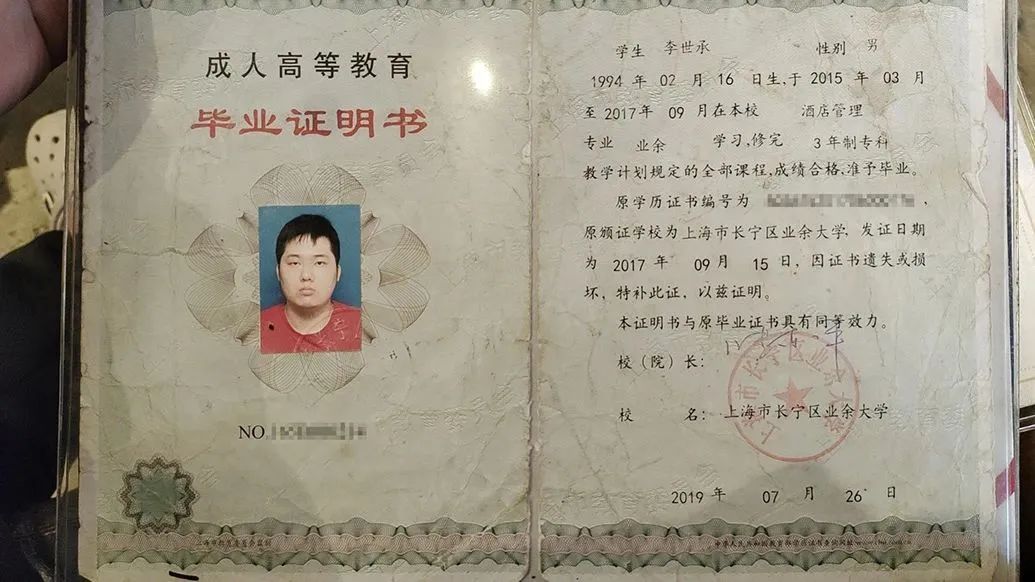 成人高等教育
毕业证明书
NO.
上海市教育委员会监制
学生 李世承 性别 男
1994 年 02 月 16 日生,于 2015 年 03 月
至 2017年 09 月在本校 酒店管理
专业 业余 学习,修完 3 年制专科
教学计划规定的全部课程,成绩合格,准予毕业。
原学历证书编号为 ,
原颁证学校为上海市长宁区业余大学, 发证日期
为 2017 年 09 月 15 日, 因证书遗失或损
坏, 特补此证, 以兹证明。
本证明书与原毕业证书具有同等效力。
校（院）长:
校 名: 上海市长宁区业余大学
上海市长宁区业余大学
2019 年 07 月 26 日
中华人民共和国教育部学历证书查询网址:www.chsi.com.cn